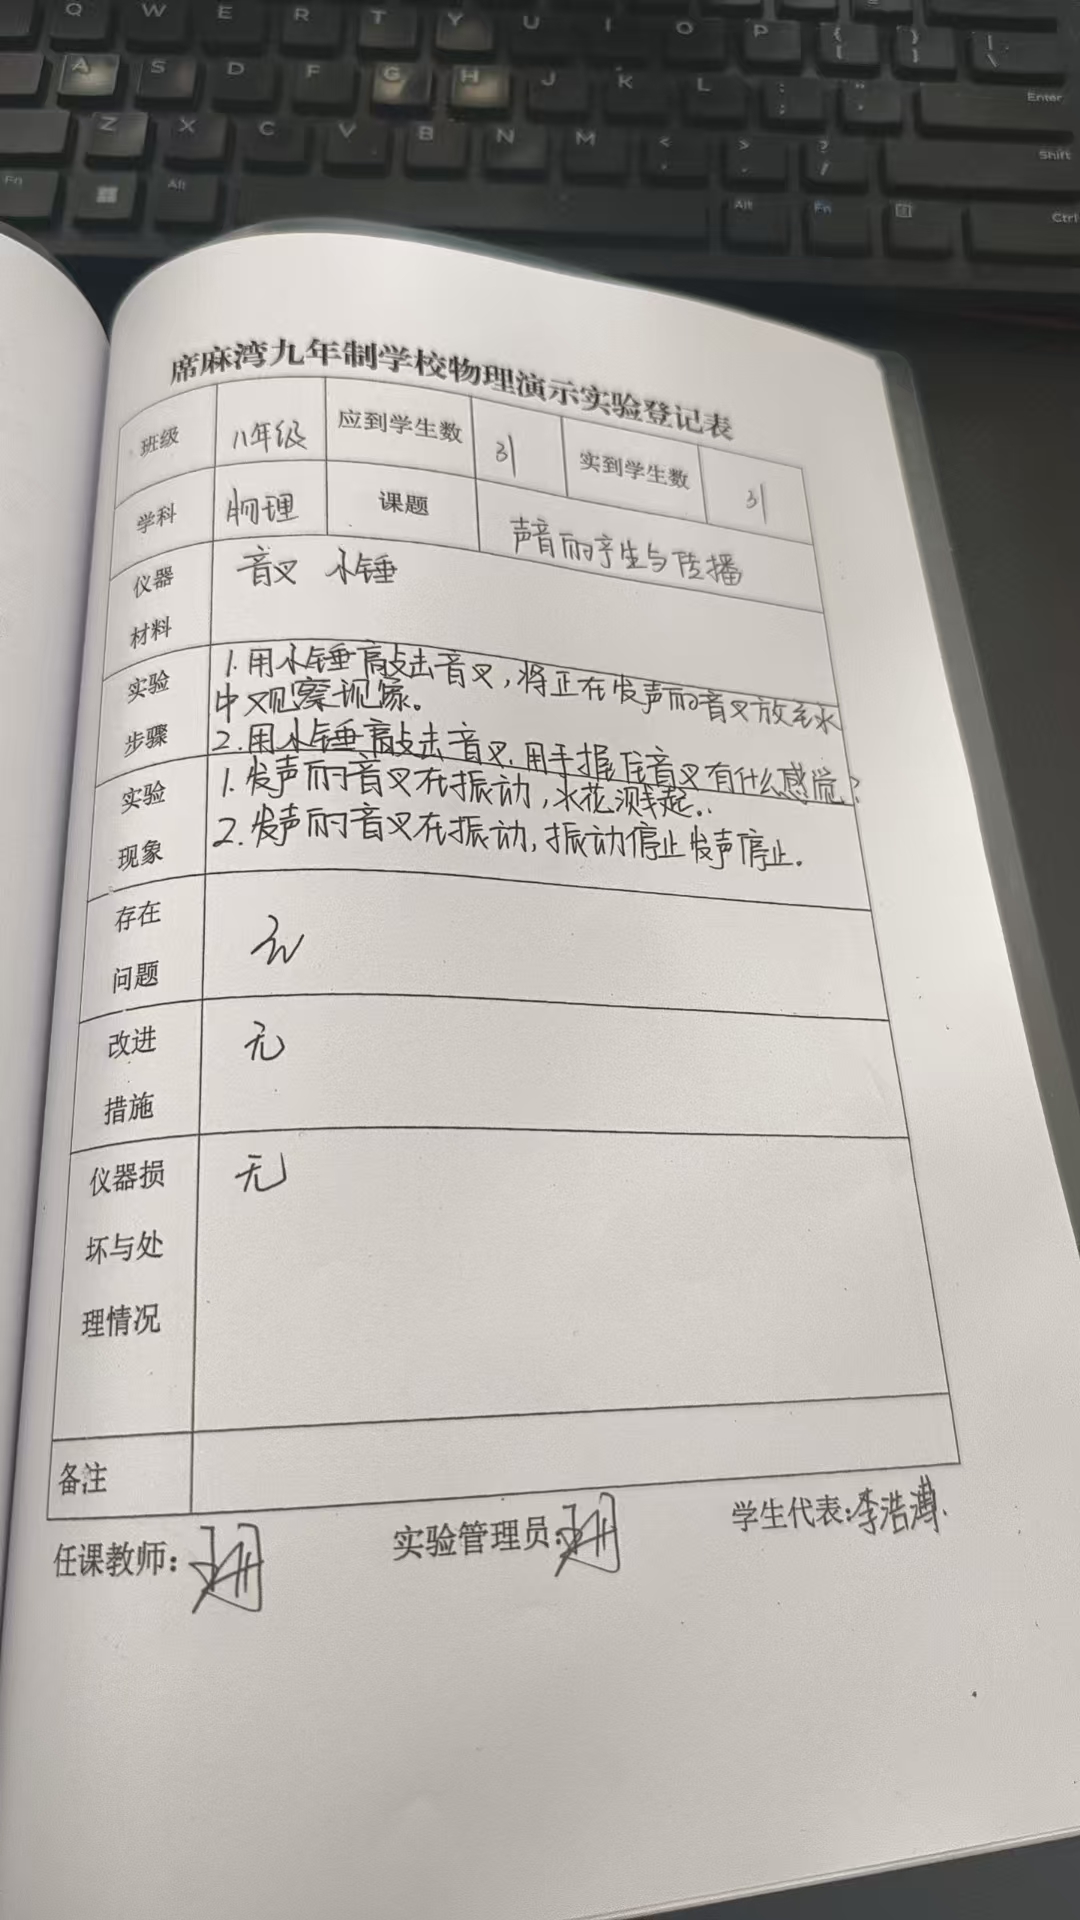 Q W E R T Y U I O P { [ } ] | \
A S D F G H J K L : ; " ' Enter
Z X C V B N M < , > . ? / Shift
Fn Alt Alt Fn Ctrl
席麻湾九年制学校物理演示实验登记表
班级 八年级 应到学生数 31 实到学生数 31
学科 物理 课题 声音的产生与传播
仪器 音叉 小锤
材料
实验 1.用小锤敲击音叉,将正在发声的音叉放至水
中观察现象。
步骤 2.用小锤敲击音叉,用手握住音叉有什么感觉?
实验 1.发声的音叉在振动,水花溅起..
现象 2.发声的音叉在振动,振动停止发声停止.
存在 无
问题
改进 无
措施
仪器损 无
坏与处
理情况
备注
任课教师: 实验管理员: 学生代表:李浩